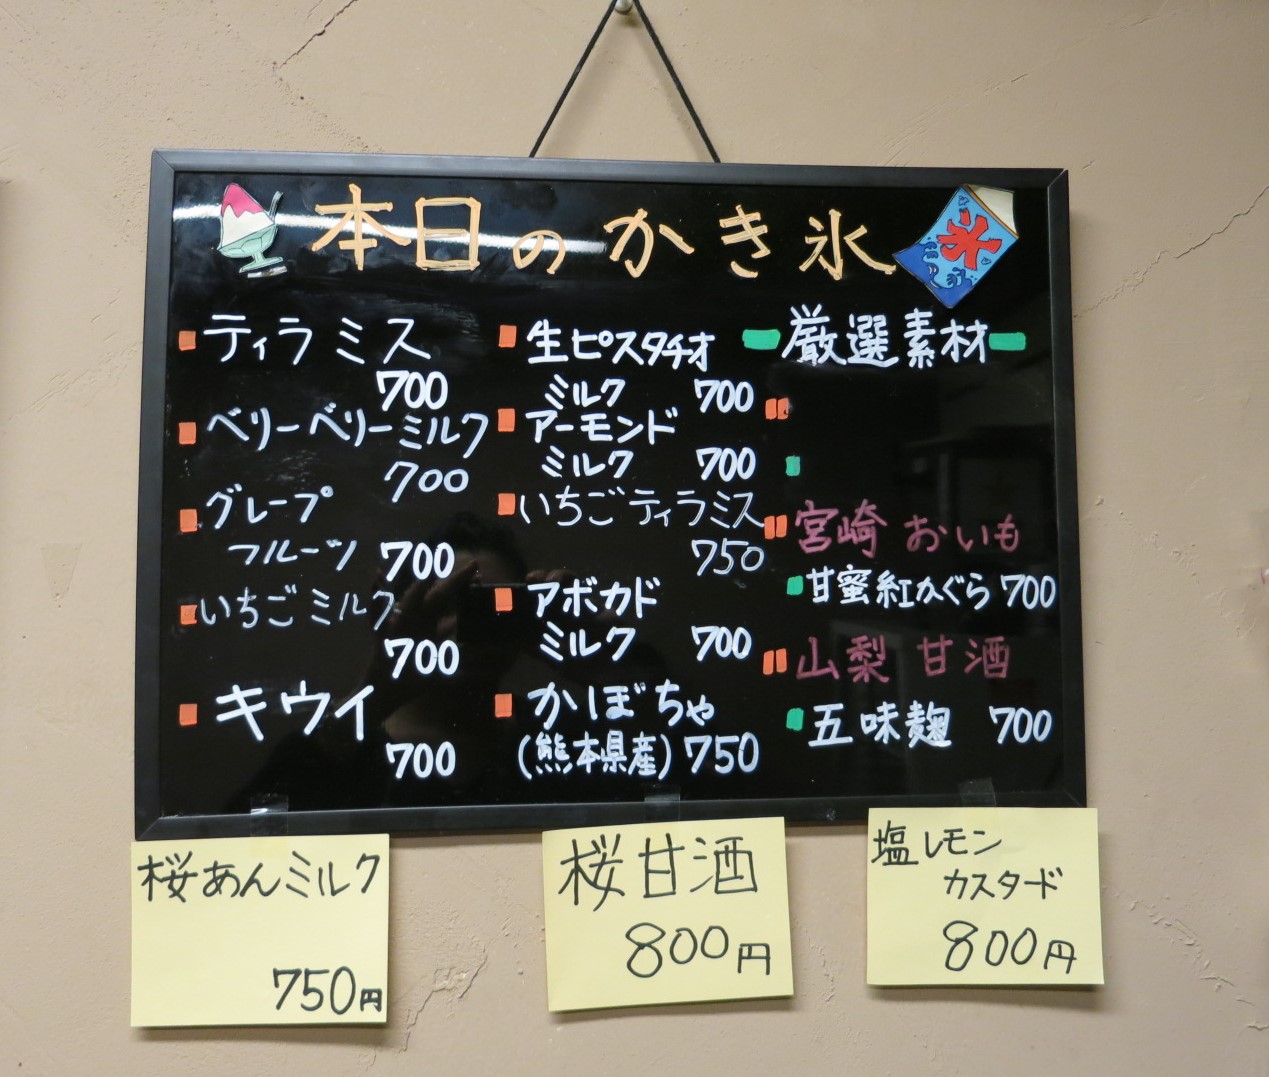 本日のかき氷
氷
ティラミス
700
ベリーベリーミルク
700
グレープ
フルーツ 700
いちごミルク
700
キウイ
700
生ピスタチオ
ミルク 700
アーモンド
ミルク 700
いちごティラミス
750
アボカド
ミルク 700
かぼちゃ
(熊本県産) 750
厳選素材
宮崎 おいも
甘蜜紅かぐら 700
山梨 甘酒
五味麹 700
桜あんミルク
750円
桜甘酒
800円
塩レモン
カスタード
800円